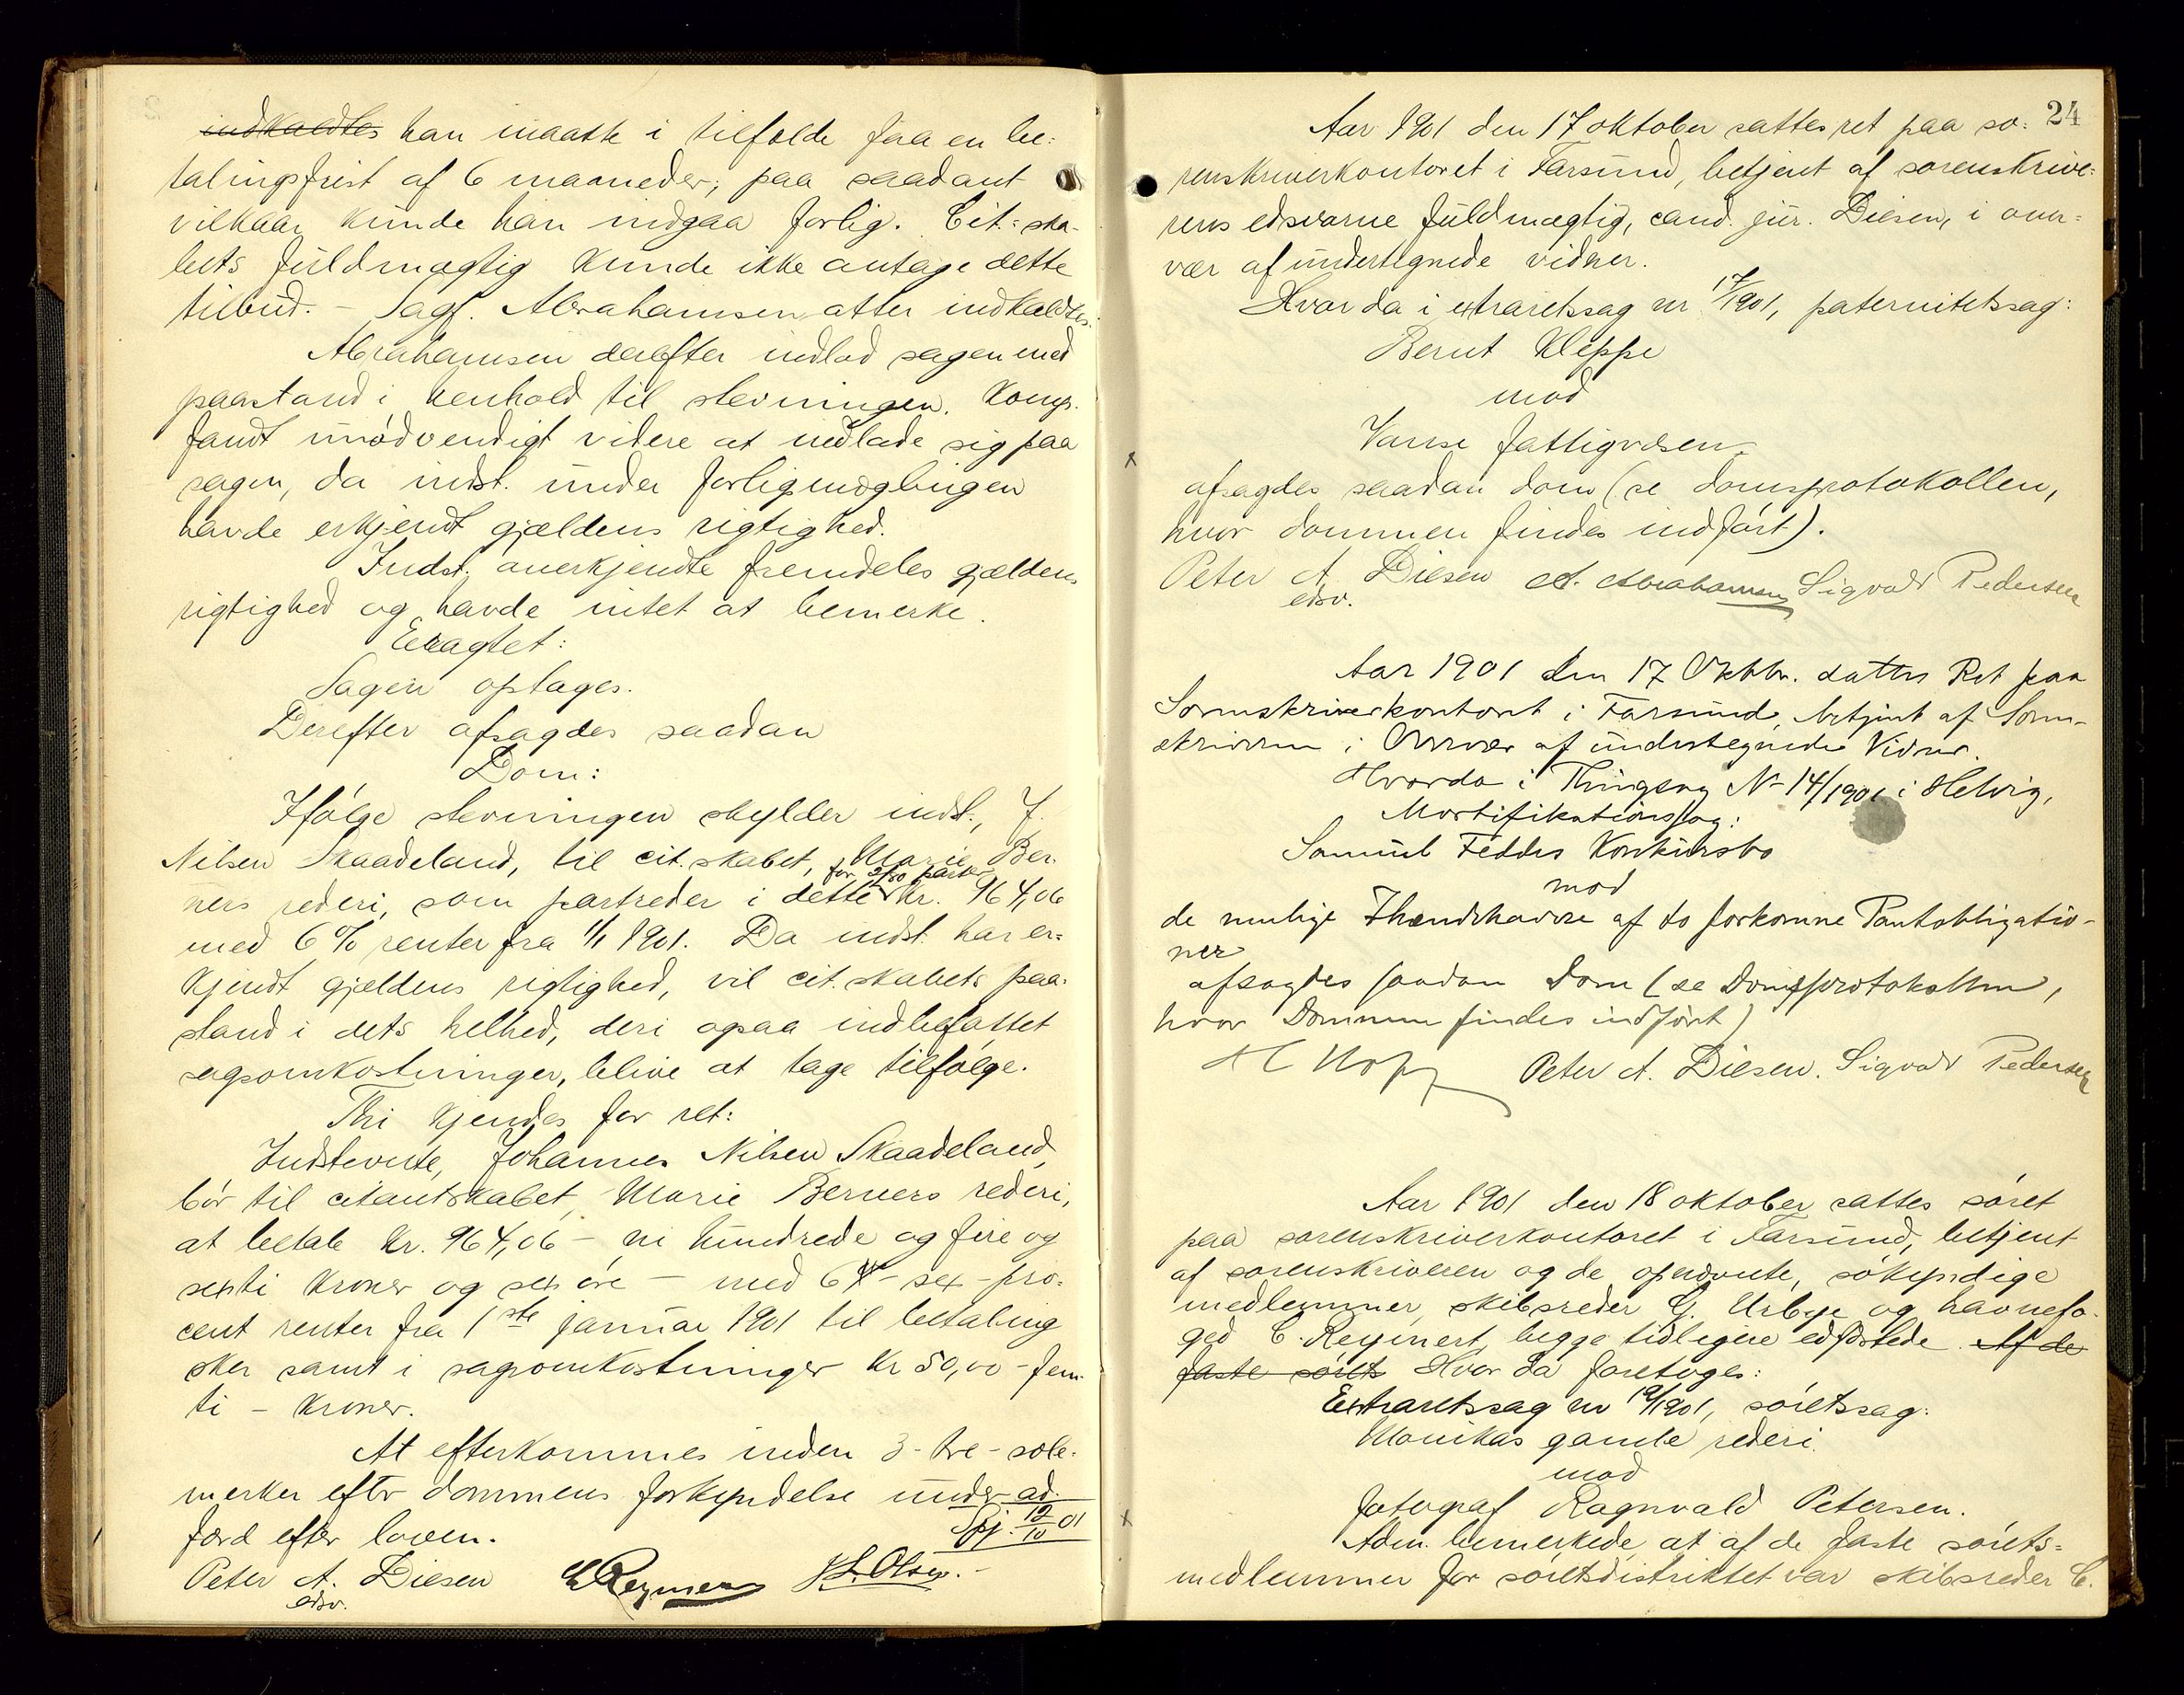 indkaldtes han maatte i tilfælde faa en be:
talingsfrist af 6 maaneder; paa saadant
vilkaar kunde han indgaa forlig. Cit:ska-
bets fuldmægtig kunde ikke antage dette
tilbud. - Sagf. Abrahamsen atter indkaldtes.
Abrahamsen derefter indlod sagen med
paastand i henhold til stevningen. Komp.
fandt unødvendigt videre at indlade sig paa
sagen, da indst. under forligsmæglingen
havde erkjendt gjældens rigtighed.
Indst. anerkjendte fremdeles gjældens
rigtighed og havde intet at bemerke.
Eragtet:
Sagen optages.
Derefter afsagdes saadan
Dom:
Ifølge stevningen skylder indst., J.
Nilsen Skaadeland, til cit.skabet, Marie Ber-
for 2/50 parter
ners rederi, som partreder i dette kr. 964,06
med 6 % renter fra 1/1 1901. Da indst. har er:
kjendt gjældens rigtighed, vil cit.skabets paa:
stand i dets helhed, deri ogsaa indbefattet
sagsomkostninger, blive at tage tilfølge.
Thi kjendes for ret:
Indstevnte, Johannes Nilsen Skaadeland,
bør til citantskabet, Marie Berners rederi,
at betale kr. 964,06 - ni hundrede og fire og
sexti kroner og sex øre - med 6 - sex - pro:
cent renter fra 1ste januar 1901 til betaling
sker samt i sagsomkostninger kr 50,00 - fem-
ti - kroner.
At efterkommes inden 3 - tre - sole:
merker efter dommens forkyndelse under ad-
færd efter loven.
12/10 01
Peter A. Diesen C Reymert L. Olsen.
edsv.
24
Aar 1901 den 17 oktober sattes ret paa so:
renskriverkontoret i Farsund, betjent af sorenskrive:
rens edsvorne fuldmægtig, cand. jur. Diesen, i over:
vær af undertegnede vidner.
Hvor da i extraretssag nr 17/1901, paternitetssag:
Bernt Kleppe
mod
Vanse fattigvæsen
afsagdes saadan dom (se domsprotokollen,
hvor dommen findes indført).
Peter A. Diesen A. Abrahamsen Sigvald Pedersen
edsv.
Aar 1901 den 17 Oktbr. sattes Ret paa
Sorenskriverkontoret i Farsund, betjent af Soren-
skriveren i Overvær af undertegnede Vidner.
Hvorda i Thingsag No 14/1901 i Helvig,
Mortifikationssag:
Samuel Feddes Konkursbo
mod
de mulige Ihændehavere af to forkomne Pantobligatio-
ner
afsagdes saadan Dom (se Domsprotokollen,
hvor Dommen findes indført)
Peter A. Diesen. Sigvald Pedersen
Aar 1901 den 18 oktober sattes søret
paa sorenskriverkontoret i Farsund, betjent
af sorenskriveren og de opnævnte, søkyndige
medlemmer, skibsreder G. Urbye og havnefo-
ged C. Reymert, begge tidligere edfæstede. Af de
faste sørets Hvor da foretoges:
Extraretssag nr 19/1901, søretssag:
Monikas gamle rederi
mod
fotograf Ragnvald Petersen.
Adm. bemerkede, at af de faste sørets:
medlemmer for søretsdistriktet var skibsreder C.